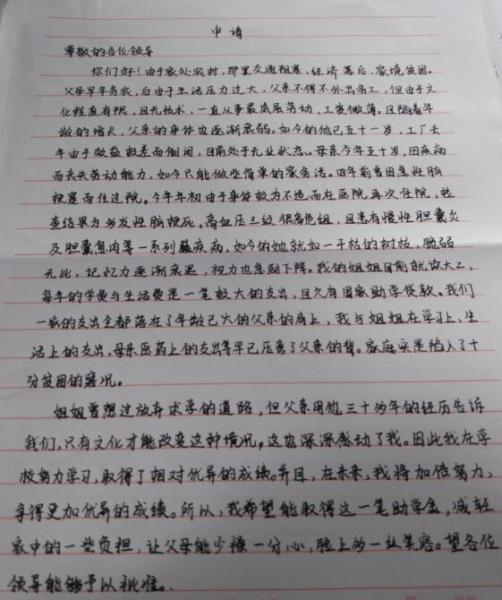 申请
尊敬的各位领导
你们好！由于家处农村，那里交通阻塞，经济落后，家境贫困。
父母早年务农，后由于生活压力过大，父亲不得不外出务工，但由于文
化程度有限，且无技术，一直从事最底层劳动，工资微薄。且随着年
龄的增长，父亲的身体也逐渐衰弱。如今的他已五十一岁，工厂去
年由于效益较差而倒闭，目前处于无业状态。母亲今年五十岁，因疾病
而丧失劳动能力，如今只能做些简单的家务活。四年前曾因急性脑
梗塞而住过院。今年年初由于身体极为不适而在医院再次住院，检
查结果为多发性脑梗死，高血压三级很高危组，且患有慢性胆囊炎
及胆囊息肉等一系列疾病，如今的她就如一干枯的树枝，脆弱
无比，记忆力逐渐衰退，视力也急剧下降。我的姐姐目前就读大二，
每年的学费与生活费是一笔极大的支出，且欠有国家助学贷款。我们
一家的支出全部落在了年龄已大的父亲的肩上，我与姐姐在学习上、生
活上的支出，母亲医药上的支出等早已压弯了父亲的背。家庭实是陷入了十
分贫困的窘况。
姐姐曾想过放弃求学的道路，但父亲用他三十多年的经历告诉
我们，只有文化才能改变这种境况，这也深深感动了我。因此我在学
校努力学习，取得了相对优异的成绩。并且，在未来，我将加倍努力，
争得更加优异的成绩。所以，我希望能取得这一笔助学金，减轻
家中的一些负担，让父母能少操一分心，脸上多一丝笑容。望各位
领导能够予以批准。